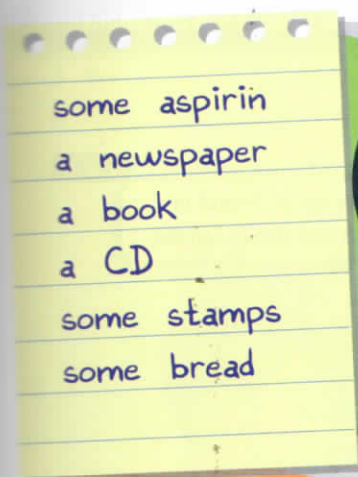 some aspirin
a newspaper
a book
a CD
some stamps
some bread